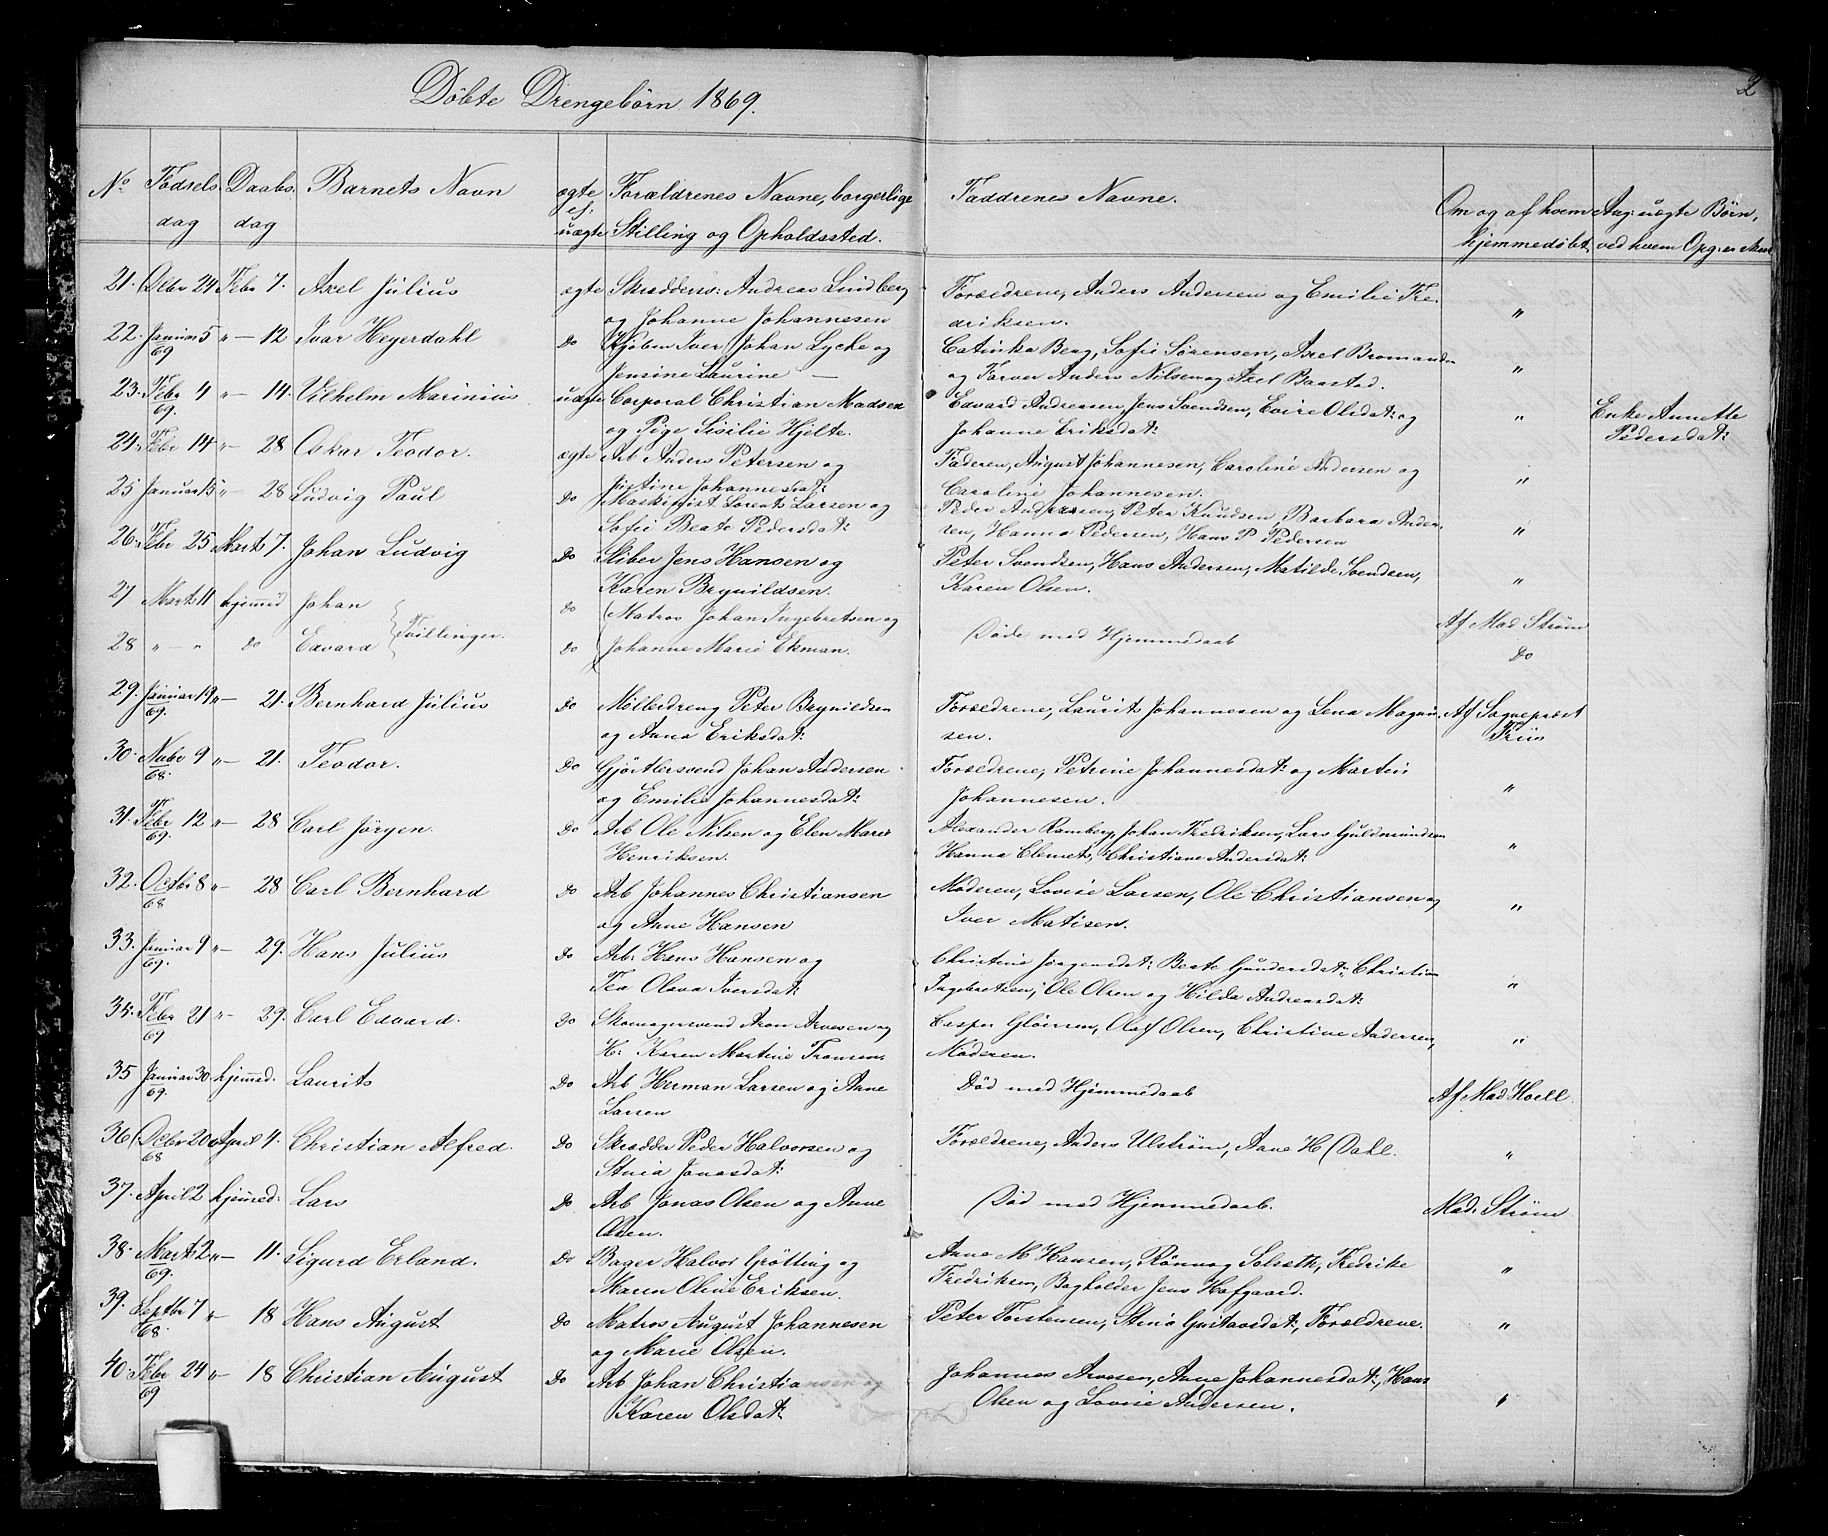 Döbte Drengebörn 1869.
2
No Födsels dag Daabs dag Barnets Navn ægte el: uægte Forældrenes Navne, borgerlige Stilling og Opholdssted. Faddrenes Navne. Om og af hvem hjemmedöbt Ang: uægte Börn, ved hvem Opg: er skeet
21. Debr 24 Febr 7. Axel Julius ægte Skræddersv: Andreas Lindberg Forældrene, Anders Andersen og Emilie Fre- "
og Johanne Johannesen driksen.
22. Januar 5 " — 12 Ivar Heyerdahl Do Kjöbm Iver Johan Lycke og Catinka Berg, Sofie Sörensen, Axel "
69 Jensine Laurine — og Farver Anders Nilsen og Axel Baastad.
23. Febr 4 " — 14. Vilhelm Marinius uægte Corporal Christian Madsen Edvard Andreasen, Jens Svendsen, Olsdat: og " Enke Annette
69. og Pige Sisilie Hjelte. Johanne Eriksdat: Pedersdat:
24. Febr 14 " 28 Oskar Teodor. ægte Arb Anders Petersen og Faderen, August Johannesen, Caroline Andersen og "
Johannesdat: Caroline Johannesen.
25 Januar 15 " — 28 Ludvig Paul Do Maskinist Lorents Larsen og Peder Andersen, Peter Knudsen, Barbara Ander- "
Sofie Beate Pedersdat: sen, Hanna Pedersen, Hans P Pedersen
26. Febr 25 Marts 7. Johan Ludvig Do Sliber Jens Hansen og Peter Svendsen, Hans Andersen, Matilde Svendsen, "
Karen Brynildsen. Karen Olsen.
27 Marts 11 hjemmed Johan Do Matros Johan Ingebretsen og Döde med Hjemmedaab Af Mad Ström
Tvillinger.
28 " — " do Edvard Do Johanne Marie Ekman. Do
29. Januar 19 " — 21. Bernhard Julius Do Möllerdreng Peter Brynildsen Forældrene, Laurits Johannesen og Lena Magnu- Af Sognepræst
69. og Anna Eriksdat: sen. Friis
30. Nvbr 9 " — 21. Teodor. Do Gjörtlersvend Johan Andersen Forældrene, Petrine Johannesdat: og Martin "
68. og Emilie Johannesdat: Johannesen.
31. Febr 12 " — 28 Carl Jörgen. Do Arb Ole Nilsen og Elen Marie Alexander Ramberg, Johan Fredriksen, Lars Guldmundsen "
69. Henriksen. Hanna Clemets, Christiane Andersdat:
32. Octbr 8 " — 28 Carl Bernhard Do Arb Johannes Christiansen Moderen, Lovise Larsen, Ole Christiansen og "
68 og Anne Hansen Iver Matisen.
33. Januar 9 " — 29. Hans Julius Do Arb: Hans Hansen og Christine Jörgensdat: Beate Gundersdat: Christian "
69. Tea Olava Iversdat: Ingebretsen, Ole Olsen og Hilda Andreasdat:
34. Febr 21 " — 29. Carl Edvard. Do Skomagersvend Aron Arvesen og Casper Glörsen, Olaf Olsen, Christine Andersen, "
69 H: Karen Martine Fransen Moderen.
35 Januar 30 hjemmed. Laurits Do Arb Herman Larsen og Anne Död med Hjemmedaab Af Mad Hoell.
69. Larsen
36 Debr 20 April 4. Christian Alfred. Do Skrædder Peder Halvorsen og Forældrene, Anders Ulström, Anne H Dahl. "
68 Stina Jonasdat:
37. April 2 hjemmed: Lars Do Arb Jonas Olsen og Anne Död med Hjemmedaab. Mad. Ström
Olsen.
38. Marts 2 " — 11. Sigurd Erland. Do Bager Halvor Grötting og Anne M Hansen, Rönnog Solseth, Fredrike "
69. Maren Oline Eriksen. Fredriksen, Bogholder Jens Hofgaard.
39. Septbr 7 " — 18 Hans August Do Matros August Johannesen Peter Torstensen, Stina Gustavsdat:, Forældrene. "
68. og Marie Olsen.
40. Febr 24 " — 18 Christian August Do Arb Johan Christiansen og Johannes Arvesen, Anne Johannesdat:, Hans "
69 Karen Olsdat: Olsen og Lovise Andersen.